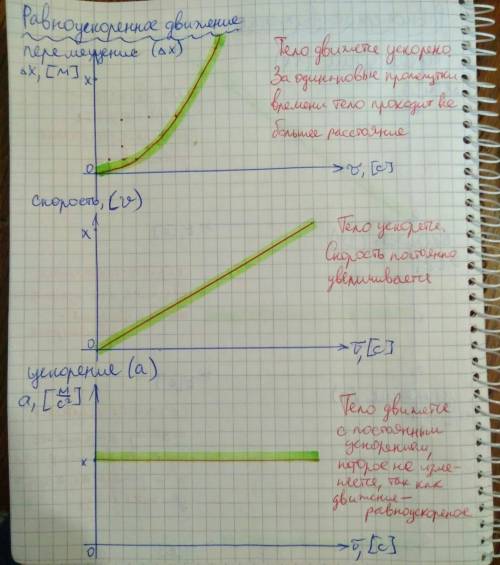 Равноускоренное движение
перемещение (Δx)
Δx, [м]
x
0
τ, [с]
Тело движетс ускорено
За одинаровые промежутки
времени тело проходит все
большее расстояние
скорость, (v)
x
0
τ, [с]
Тело ускорятс.
Скорость постоянно
увеличивается
ускорение (a)
a, [м/с²]
x
0
τ, [с]
Тело движетс
с постоянным
ускорением,
которое не изме-
няется, так как
движение —
равноускореное